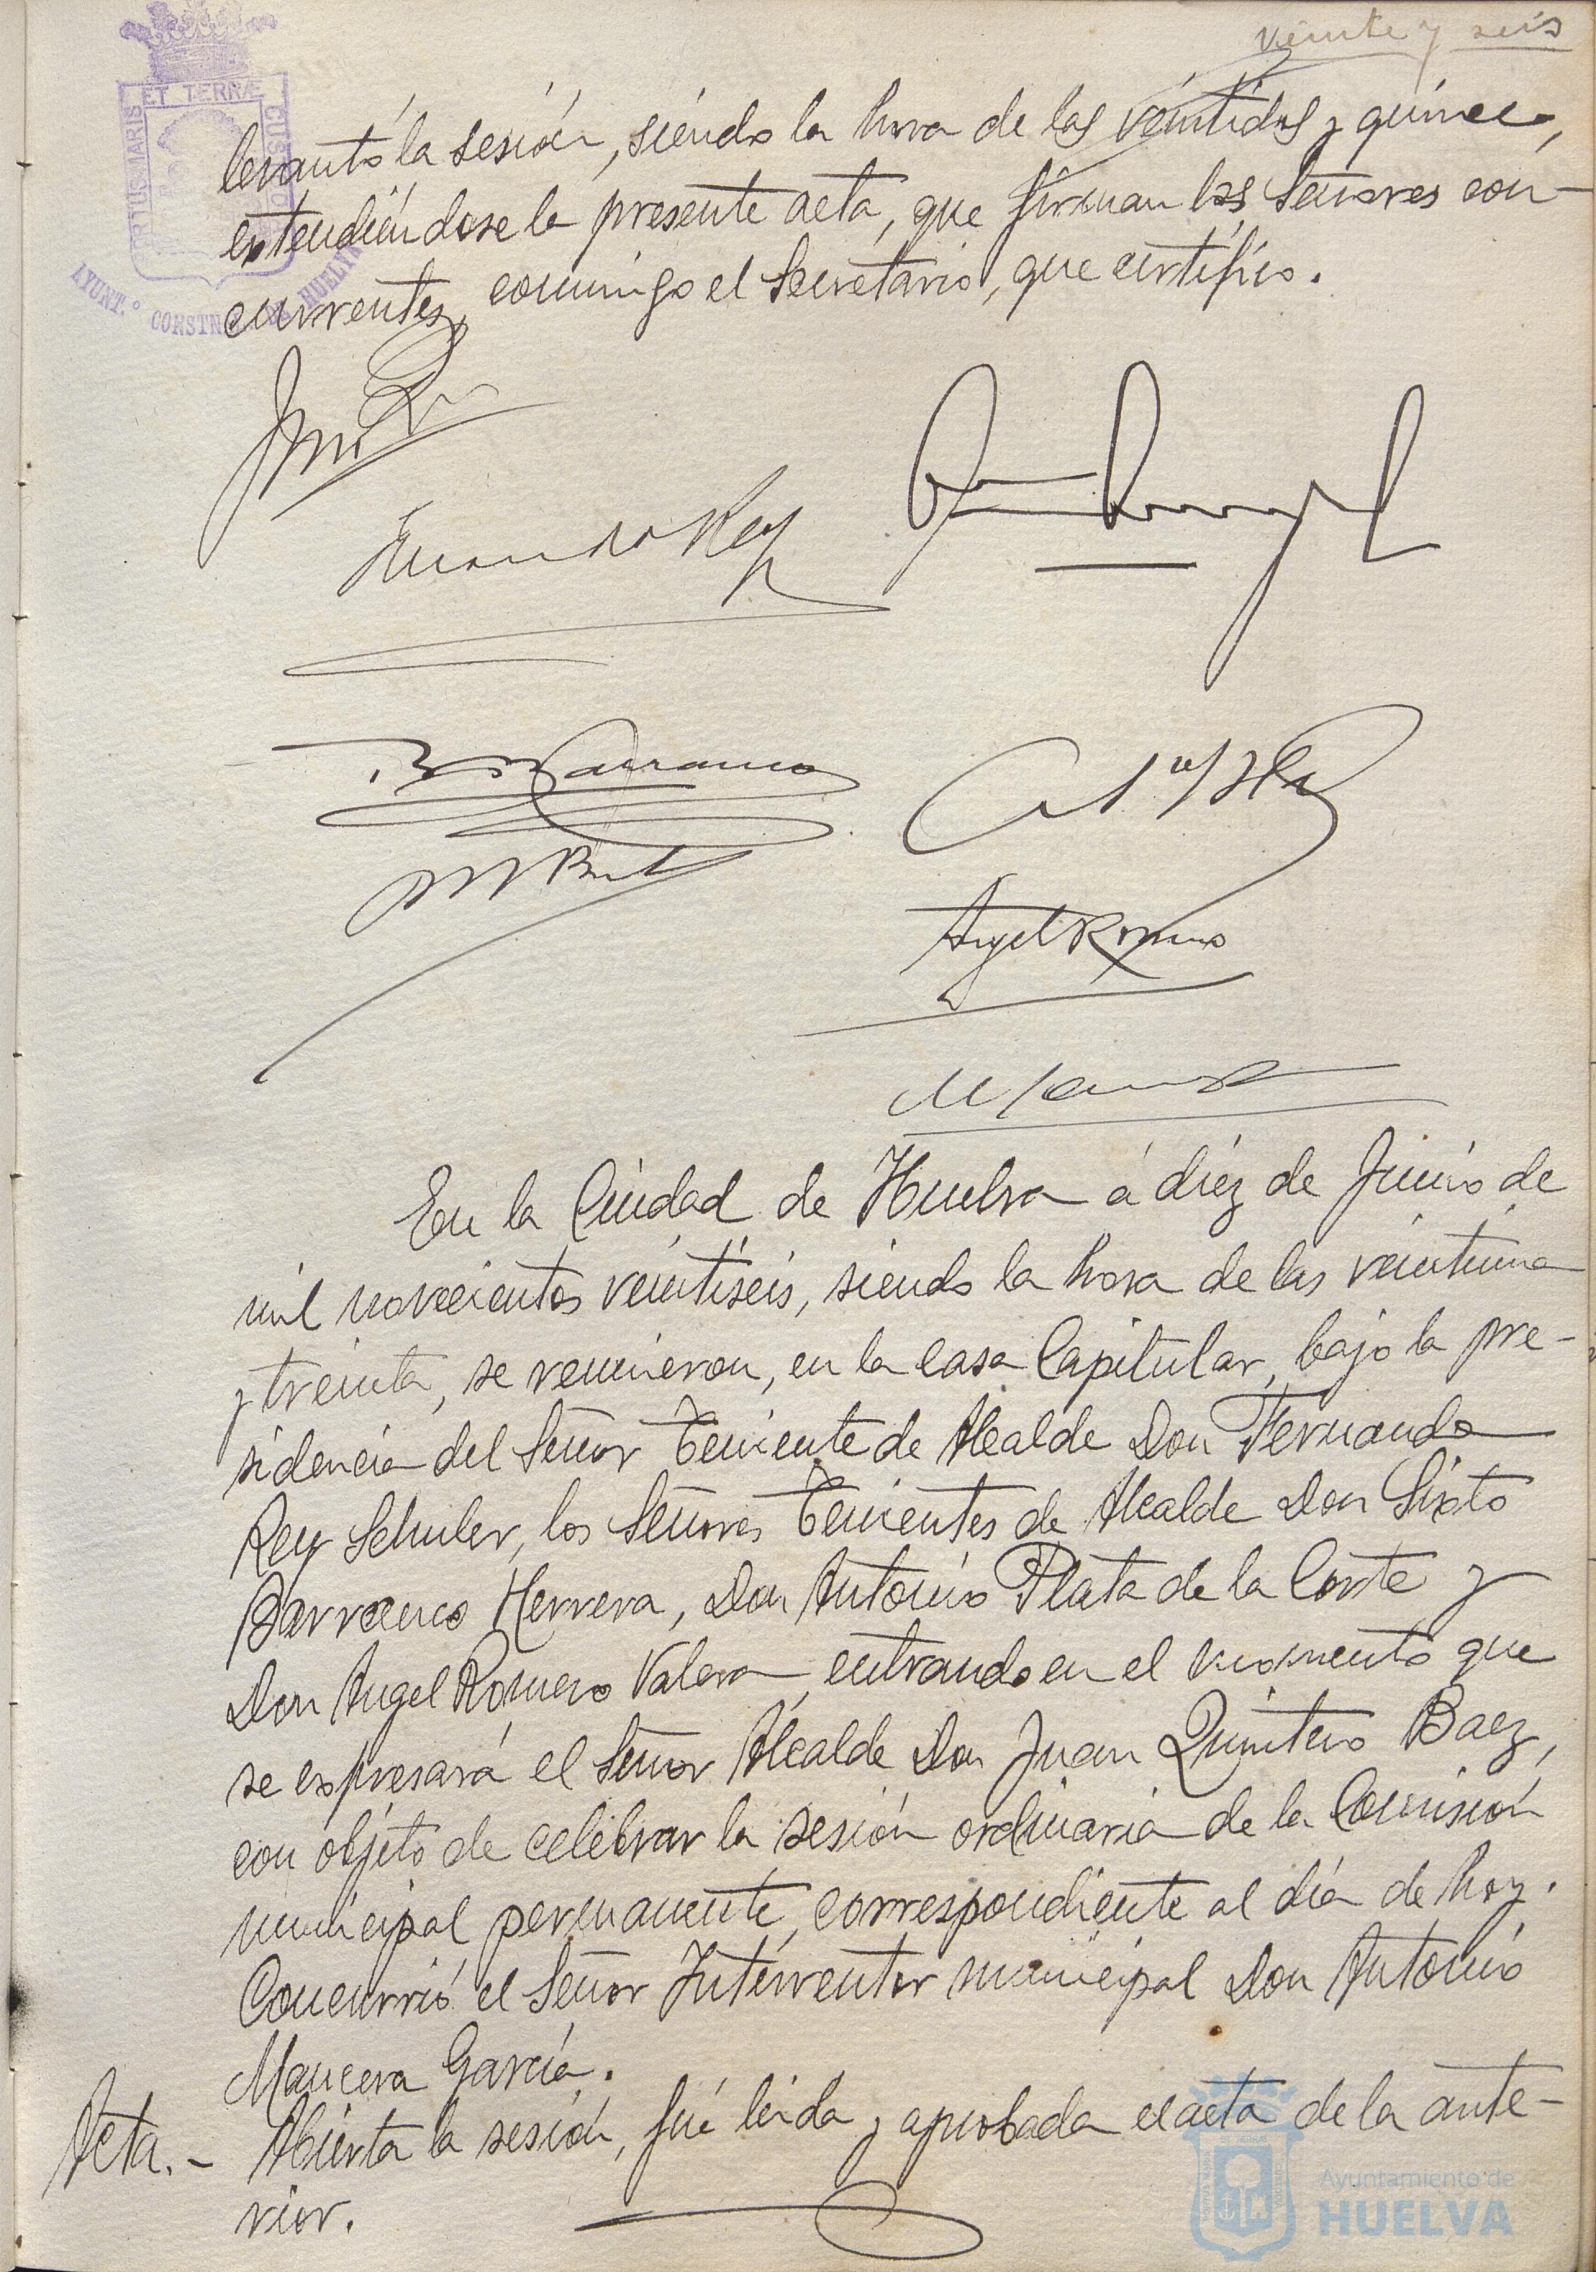 veinte y seis
PORTUS MARIS ET TERRÆ CUSTODIA
AYUNT.º CONSTNAL HUELVA
levantó la sesión, siendo la hora de las veintidos y quince,
extendiéndose la presente acta, que firman los Señores con-
currentes, conmigo el Secretario, que certifico.
Fernando Rey
Barranco
Angel Romero
En la Ciudad de Huelva á diez de Junio de
mil novecientos veintiseis, siendo la hora de las veintiuna
y treinta, se reunieron, en la casa Capitular, bajo la pre-
sidencia del Señor Teniente de Alcalde Don Fernando
Rey Schuler, los Señores Tenientes de Alcalde Don Sixto
Barranco Herrera, Don Antonio Plata de la Corte y
Don Angel Romero Valera, entrando en el momento que
se expresará el Señor Alcalde Don Juan Quintero Baez,
con objeto de celebrar la sesión ordinaria de la Comisión
municipal permanente, correspondiente al día de hoy.
Concurrió el Señor Interventor municipal Don Antonio
Mancera García.
Acta.- Abierta la sesión, fué leida y aprobada el acta de la ante-
rior.
Ayuntamiento de
HUELVA